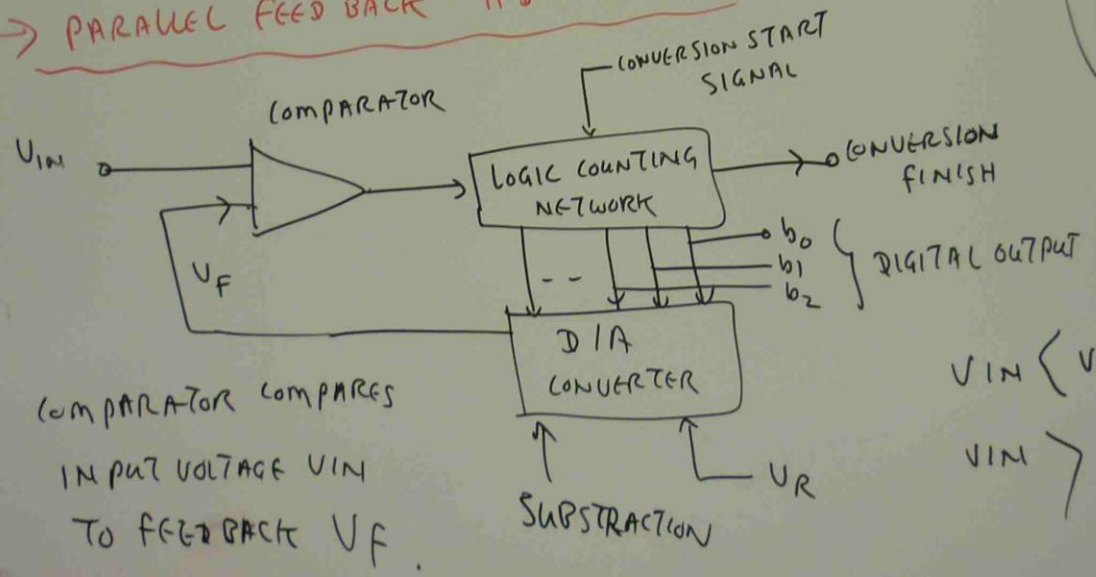 → PARALLEL FEED BACK
COMPARATOR
CONVERSION START
SIGNAL
VIN
LOGIC COUNTING
NETWORK
CONVERSION
FINISH
b0
b1
b2
DIGITAL OUTPUT
VF
- -
D/A
CONVERTER
VIN <
VIN >
COMPARATOR COMPARES
INPUT VOLTAGE VIN
TO FEEDBACK VF.
SUBSTRACTION
VR